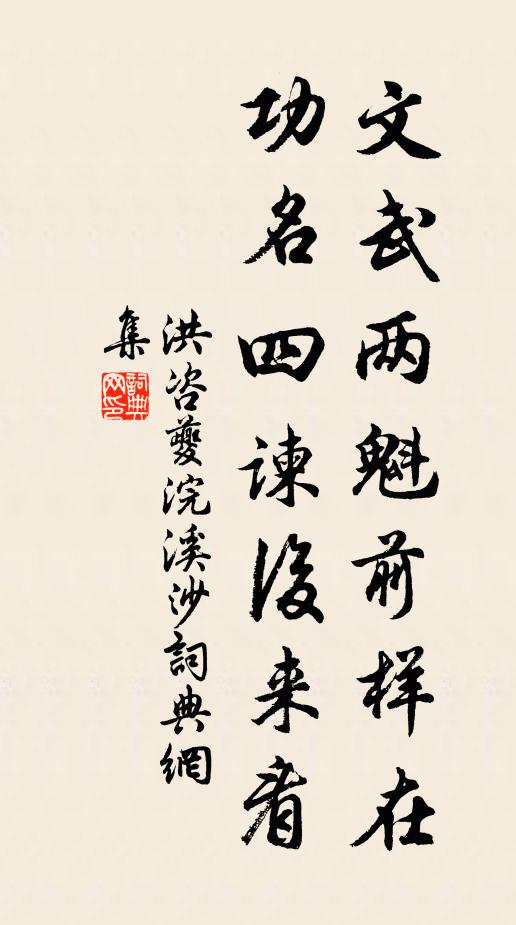 文武两魁前样在
功名四谏後来看
洪咨夔浣溪沙詞典網
集
詞典
网印